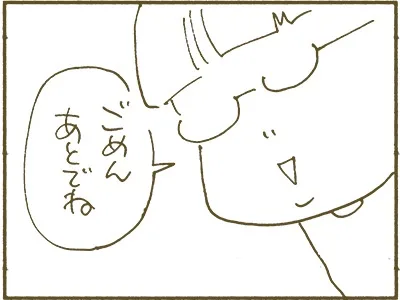 ごめん
あとでね